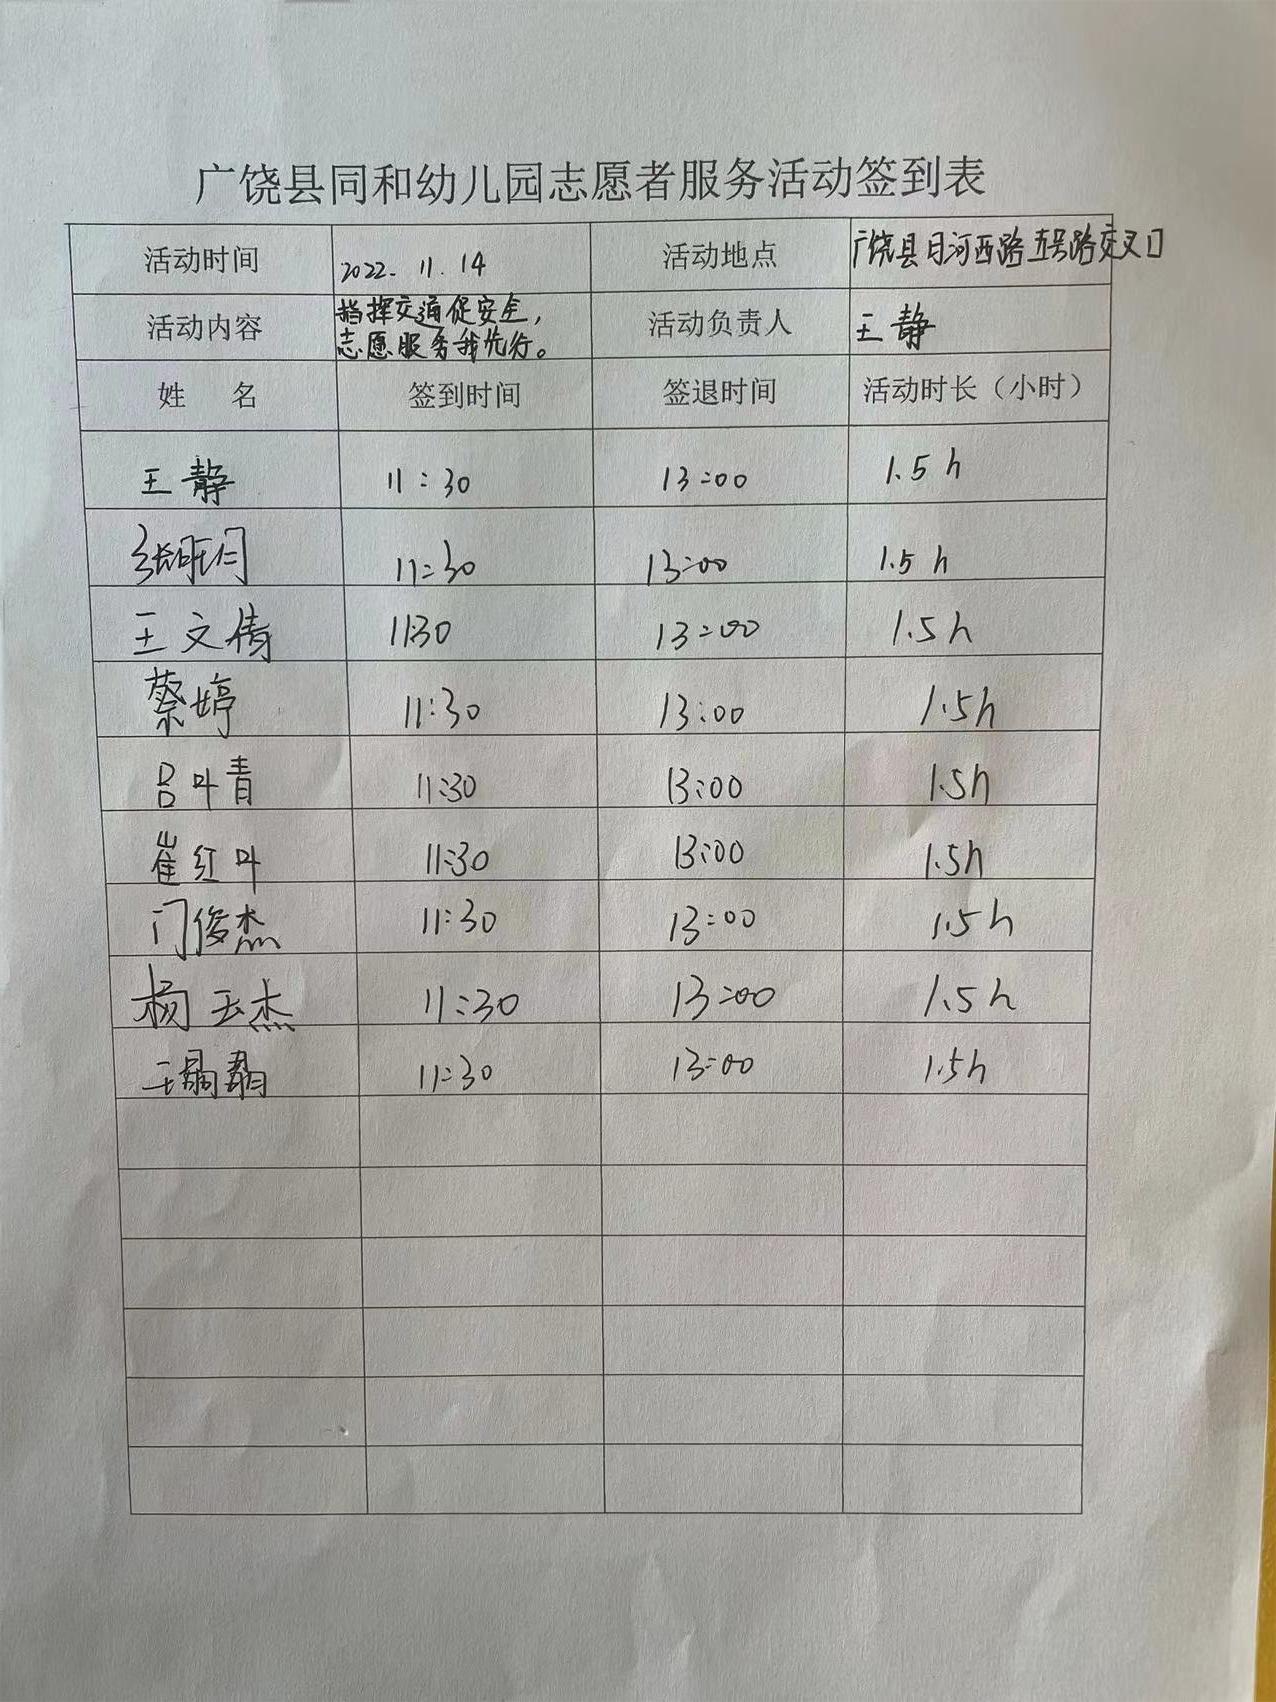 广饶县同和幼儿园志愿者服务活动签到表
活动时间 2022. 11. 14 活动地点 广饶县日河西路五号路交叉口
活动内容 指挥交通促安全，
志愿服务我先行。 活动负责人 王静
姓 名 签到时间 签退时间 活动时长（小时）
王静 11:30 13:00 1.5h
张 11:30 13:00 1.5h
王文倩 1130 13:00 1.5h
蔡婷 11:30 13:00 1.5h
吕叶青 11:30 13:00 1.5h
崔红叶 11:30 13:00 1.5h
门俊杰 11:30 13:00 1.5h
杨玉杰 11:30 13:00 1.5h
王 11:30 13:00 1.5h